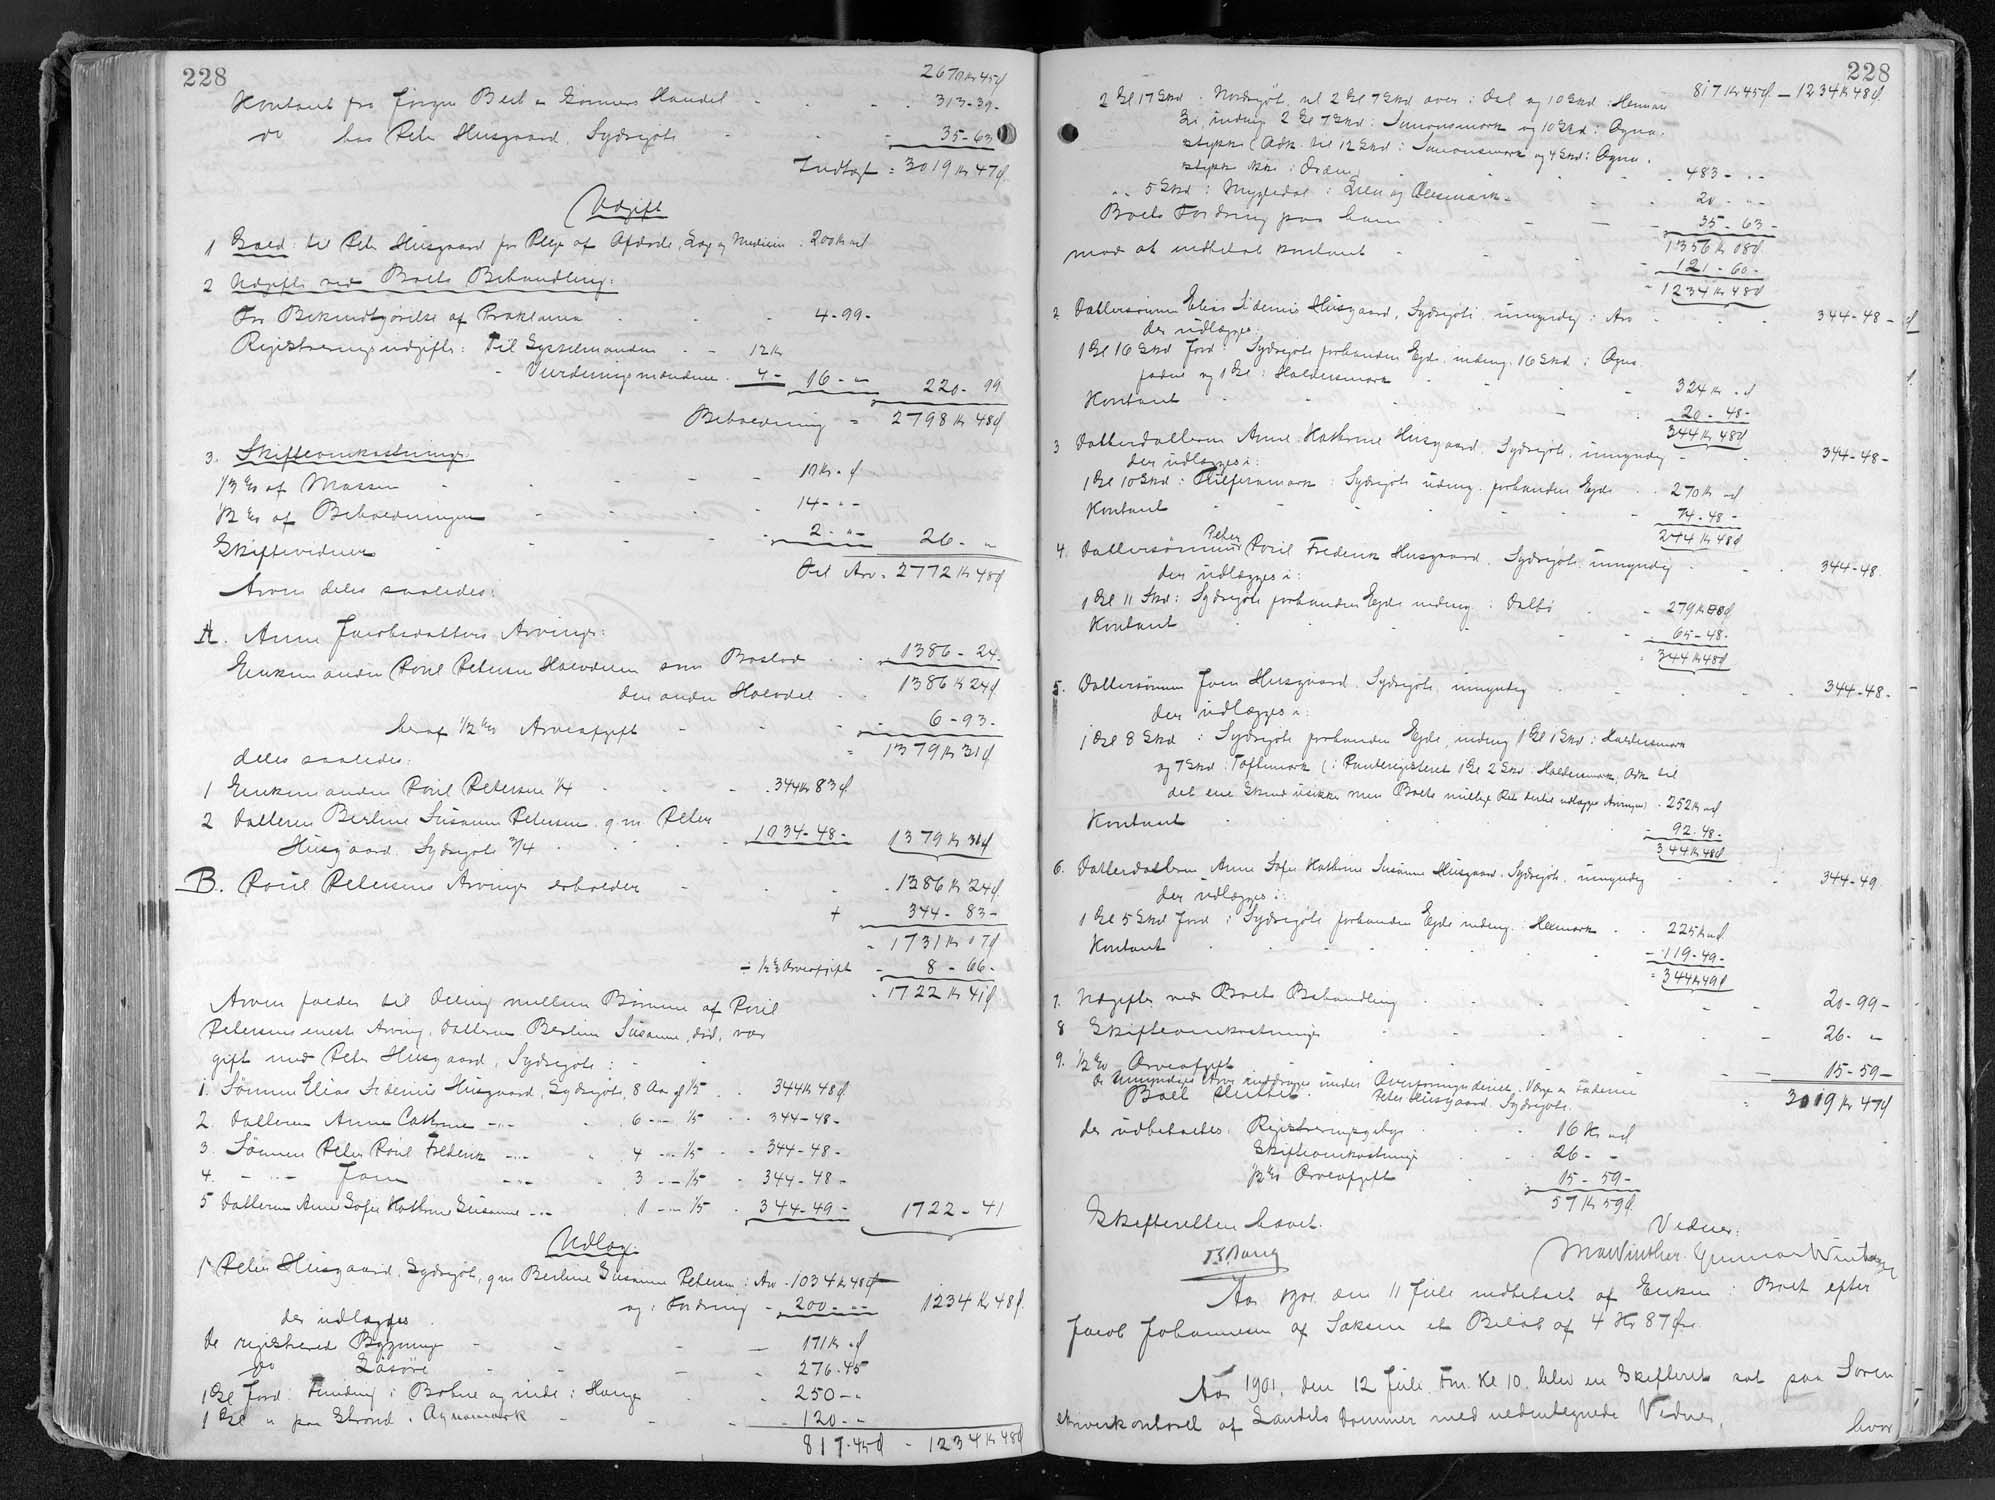 228
2670 Kr 45 Ø
Kontant fra Jørgen Bech & Sønners Handel - - - 313-39-
do hos Peter Husgaard, Sydrejgote - - - 35-63
Indtægt = 3019 Kr 47 Ø.
Udgift
1 Gæld: til Peter Husgaard for Pleje af Afdøde, Læge og Medicin. 200 Kr " Ø
2 Udgifter ved Boets Behandling:
For Bekendtgørelse af Proklama - - 4-99-
Registreringsudgifter: Til Sysselmanden - - 12 Kr
- Vurderingsmændene. 4- 16-" 220-99
Beholdning = 2798 Kr 48 Ø
3. Skifteomkostninger.
1/3 % af Massen - - - 10 Kr - Ø
1/2 % af Beholdningen - - - 14 - " -
Skiftevidner - - - 2 - " - 26 - "
Til Arv = 2772 Kr 48 Ø
Arven deles saaledes:
A. Anne Jacobsdatters Arvinger:
Enkemanden Poul Petersen Halvdelen som Boslod - - 1386-24.
den anden Halvdel - - 1386 Kr 24 Ø
heraf 1/2 % Arveafgift - - - 6-93-
= 1379 Kr 31 Ø
deles saaledes:
1 Enkemanden Poul Petersen 1/4 - - - 344 Kr 83 Ø
2 Datteren Berline Susanne Petersen g. m. Peter
Husgaard. Sydrejgote 3/4 - - - 1034-48- 1379 Kr 31 Ø
B. Poul Petersens Arvinger erholder - - - 1386 Kr 24 Ø
+ 344-83-
= 1731 Kr 07 Ø
- 1/2 % Arveafgift - 8-66-
= 1722 Kr 41 Ø
Arven falder til Deling mellem Børnene af Poul
Petersens eneste Arving, Datteren Berline Susanne, død, var
gift med Peter Husgaard, Sydrejgote: -
1. Sønnen Elias Fidenius Husgaard, Sydrejgote, 8 Aar gl 1/5 - - 344 Kr 48 Ø.
2. Datteren Anne Cathrine -"- 6 -"- 1/5 - - 344-48-
3. Sønnen Peter Poul Frederik -"- 4 -"- 1/5 - - 344-48-
4. -"- Joen -"- 3 -"- 1/5 - 344-48-
5 Datteren Anne Sofie Kathrine Susanne -"- 1 -"- 1/5 - 344-49- 1722-41
Udlæg.
1. Peter Husgaard, Sydrejgote, g. m. Berline Susanne Petersen: Arv - 1034 Kr 48 Ø
og i Fordring - 200-"- 1234 Kr 48 Ø.
der udlægges
De registrerede Bygninger - - - 171 Kr " Ø
do Løsøre - - - 276-45
1 Gl Jord i Bøhne og inde i Hauge - - 250-"
1 Gl " paa Strond i Agnamark - - - 120-"
817-45 Ø - 1234 Kr 48 Ø
228
817 Kr 45 Ø - 1234 Kr 48 Ø.
2 Gl 17 Skd i Nordrejgote til 2 Gl 7 Skd over i Dal og 10 Skd i
indmg. 2 Gl 7 Skd i Simonsmark og 10 Skd i Agna.
stykke (Adk. til 12 Skd i Simonsmark og 4 Skd i Agna.
stykke ikke i Orden - - - 483-"-
" 5 Skd i Myglidal i Lien og - - 20-"-
Boets Fordring paa ham - - - 35-63-
1356 Kr 08 Ø
mod at indbetale kontant - - - 121-60-
= 1234 Kr 48 Ø
2 Dattersønnen Elias Fidenius Husgaard, Sydrejgote, umyndig: Arv - - - 344-48- Ø
der udlægges:
1 Gl 16 Skd Jord i Sydrejgote forhenværende Ejde, indmg. 16 Skd i Agna
og 1 Gl i Haldersmark - - 324 Kr - Ø
Kontant - - - 20-48-
344 Kr 48 Ø
3 Datterdatteren Anne Kathrine Husgaard, Sydrejgote, umyndig - - - 344-48-
der udlægges i:
1 Gl 10 Skd i i Sydrejgote indmg. - - 270 Kr " Ø
Kontant - - - 74-48-
344 Kr 48 Ø
4. Dattersønnen Peter Poul Frederik Husgaard, Sydrejgote, umyndig - - - 344-48.
der udlægges i:
1 Gl 11 Skd i Sydrejgote indmg. i - - 279 Kr 00 Ø
Kontant - - - 65-48-
= 344 Kr 48 Ø
5. Dattersønnen Joen Husgaard, Sydrejgote, umyndig - - - 344-48-
der udlægges i:
1 Gl 8 Skd i Sydrejgote indmg. 1 Gl 1 Skd i Haldersmark
og 7 Skd i Toftemark (: Panteregisteret 1 Gl 2 Skd i Haldersmark, Adk til
det ene Skind usikker men Boets mulige Ret dertil udlægges Arvingen) - 252 Kr " Ø
Kontant - - - 92-48-
344 Kr 48 Ø
6. Datterdatteren Anne Sofie Kathrine Susanne Husgaard, Sydrejgote, umyndig - - - 344-49
der udlægges i:
1 Gl 5 Skd Jord i Sydrejgote indmg. i - - 225 Kr " Ø.
Kontant - - - 119-49-
= 344 Kr 49 Ø
7. Udgifter ved Boets Behandling - - - 20-99-
8 Skifteomkostninger - - - 26-"
9. 1/2 % Arveafgift - - - 15-59-
De Umyndiges Arv inddrages under Overformynderiet. Værge er Faderen
Peter Husgaard. Sydrejgote.
Boet sluttet. = 3019 Kr 47 Ø
der udbetaltes: Registreringsgebyr - - 16 Kr " Ø
Skifteomkostninger - - 26 - -
1/2 % Arveafgift - - 15-59-
57 Kr 59 Ø.
Skifteretten hævet. Vidner:
Bang M. Winther. Gunnar Winther
Aar 1901 den 11 Juli indbetalt af Enken i Boet efter
Jacob Johannesen af Saksen et Beløb af 4 Kr 87 Øre.
Aar 1901, den 12 Juli Fm. Kl 10. blev en Skifteret sat paa Soren
skriverkontoret af Landets Dommer med undertegnede Vidner,
hvor